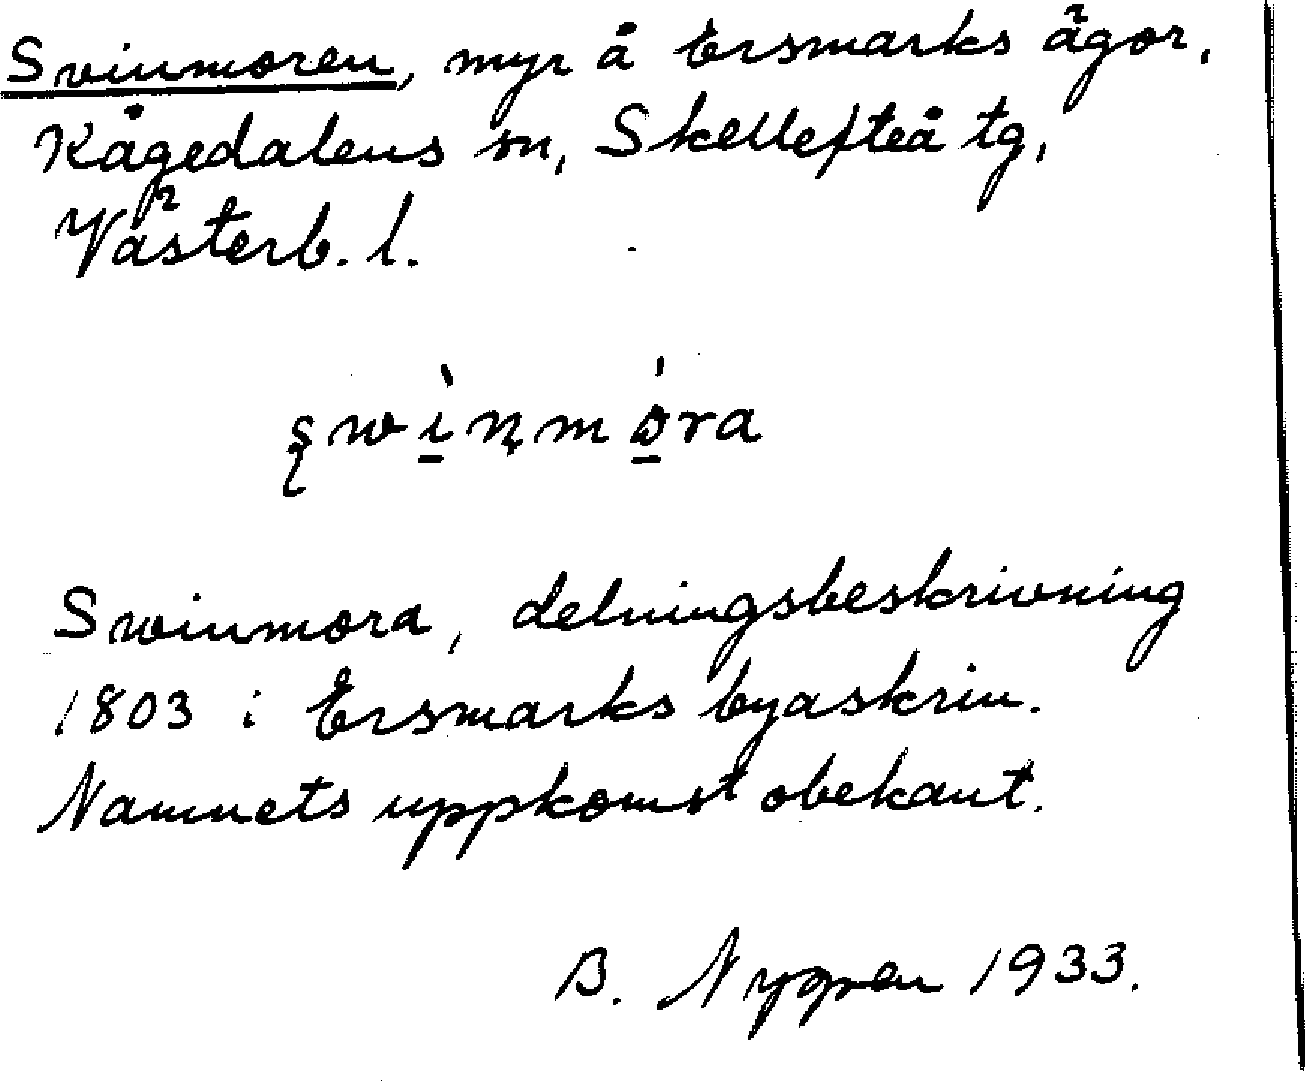 Svinmoren, myr å Ersmarks ägor,
Kågedalens sn, Skellefteå tg,
Västerb. l.
şwı̱̀ŋmɔ̱́ra
Swinmora, delningsbeskrivning
1803 i Ersmarks byaskrin.
Namnets uppkomst obekant.
B. Nygren 1933.